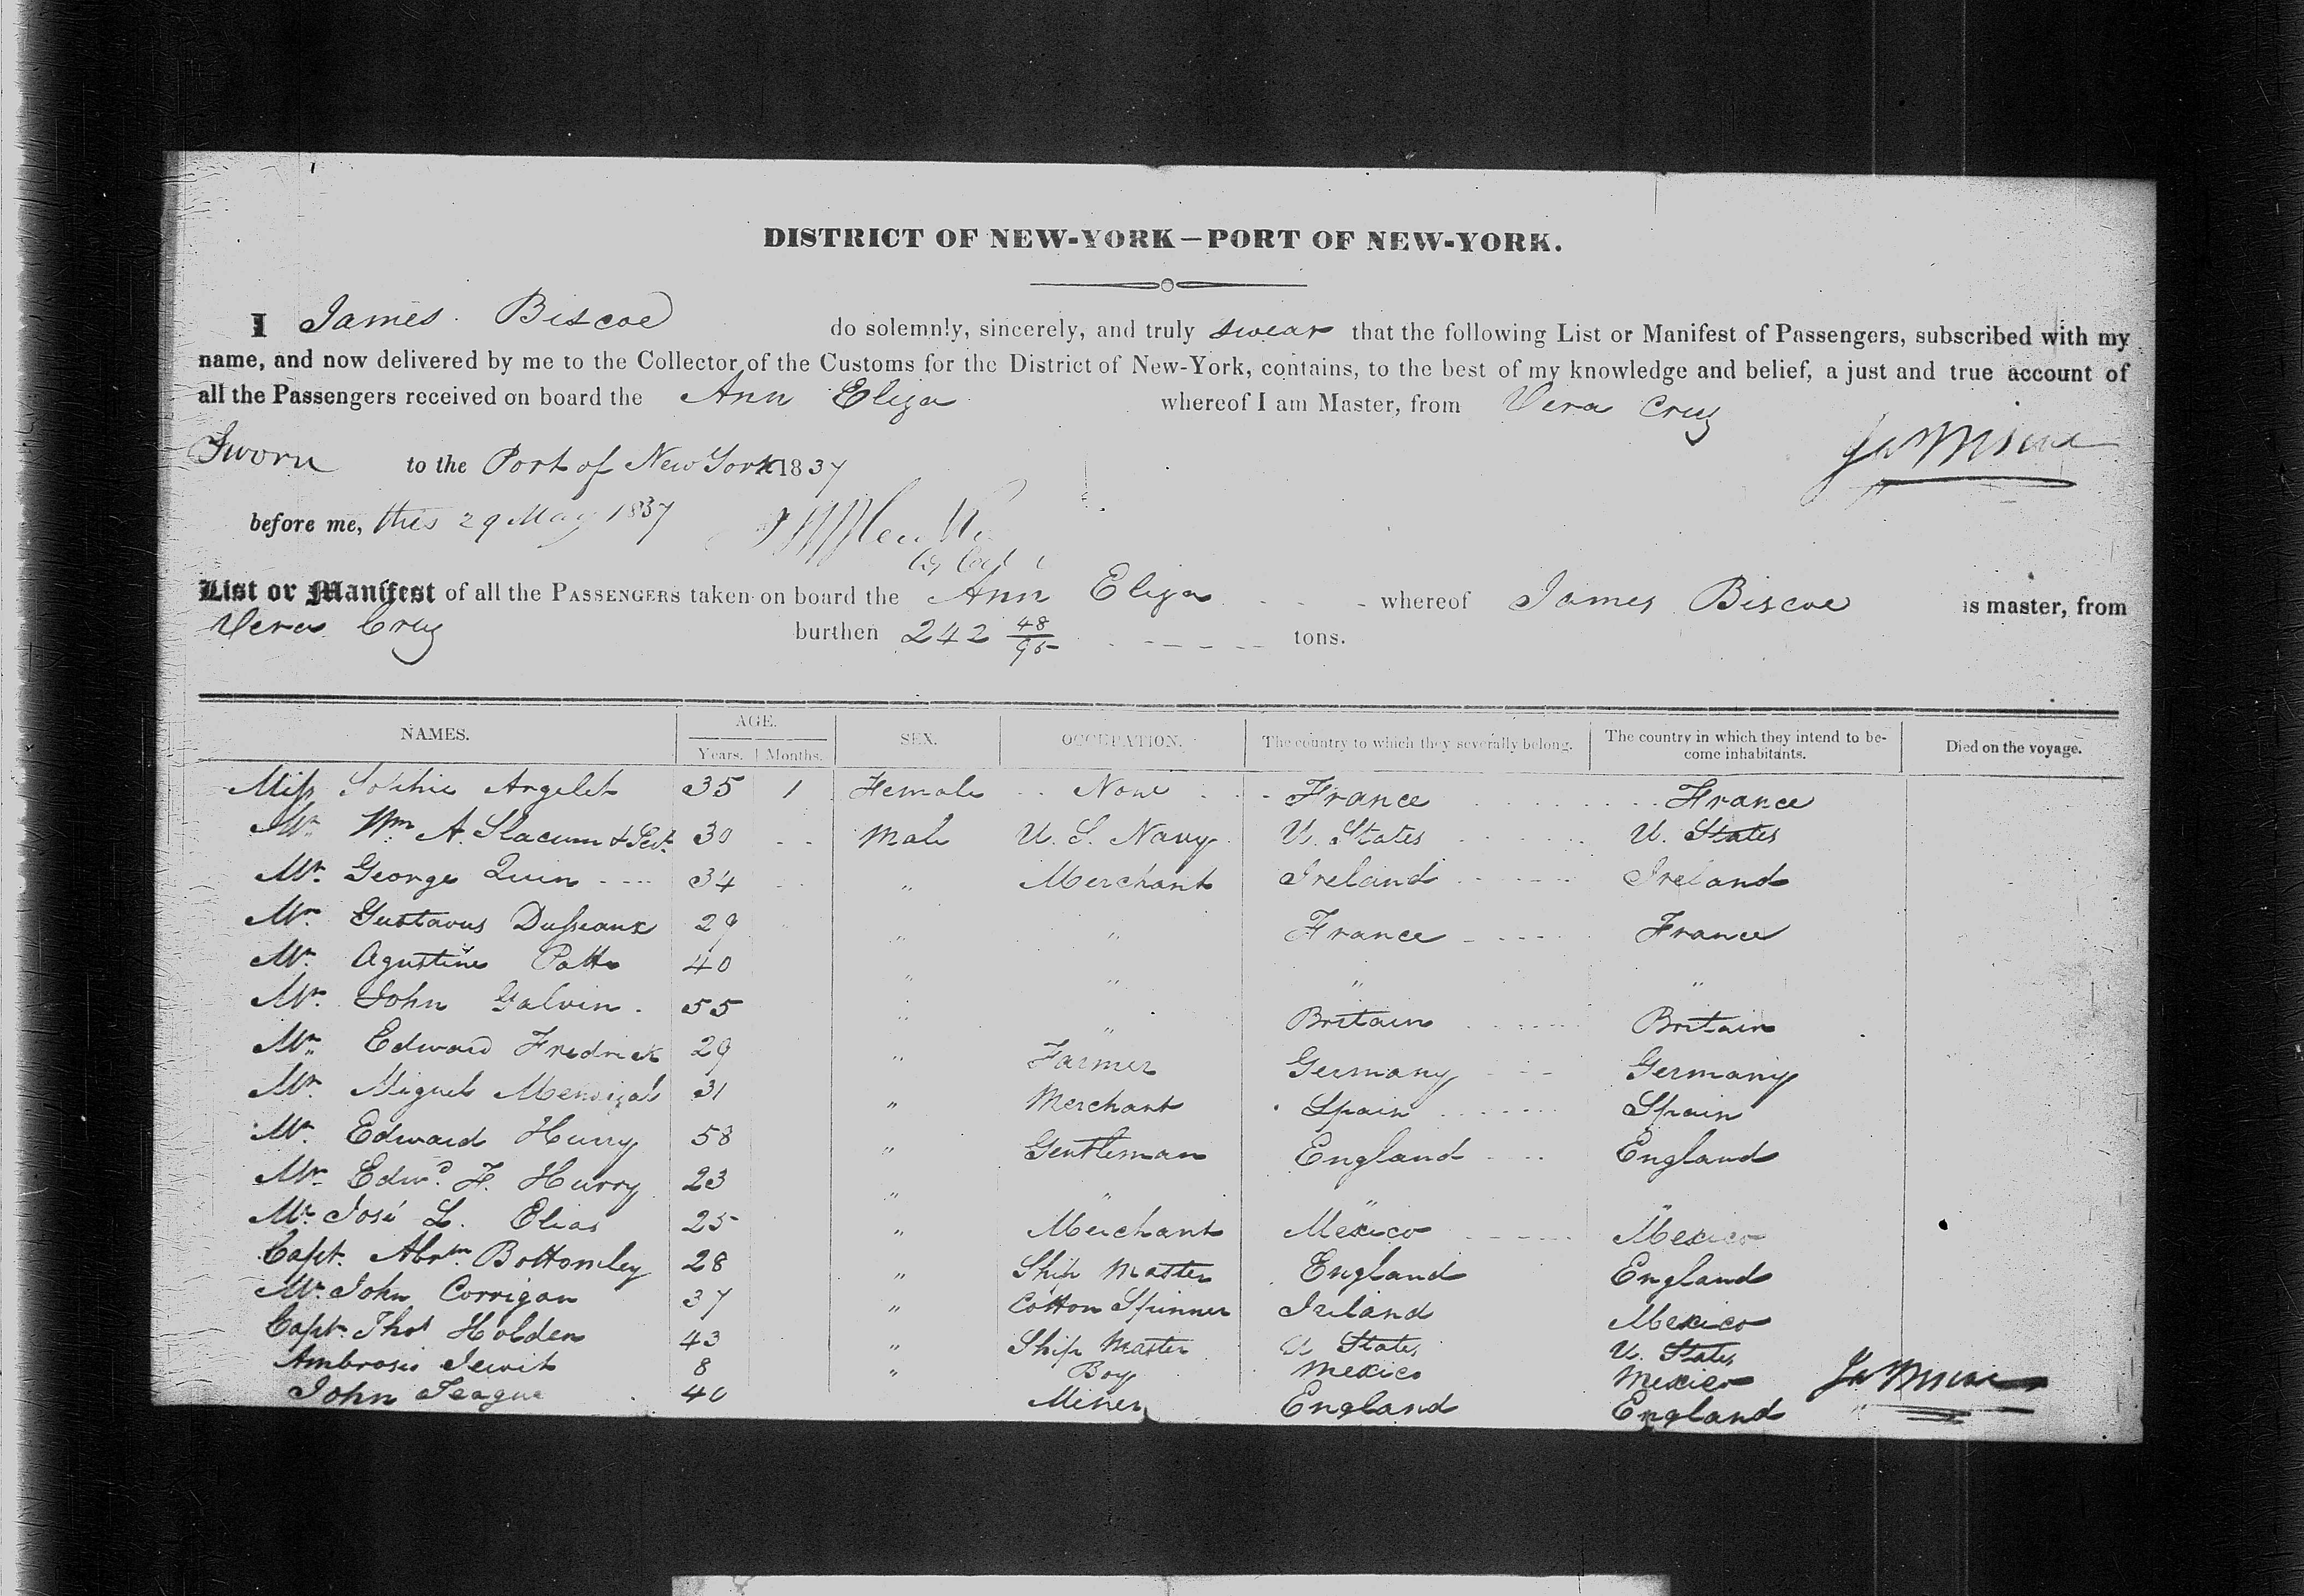 DISTRICT OF NEW-YORK—PORT OF NEW-YORK.
I James Biscoe do solemnly, sincerely, and truly swear that the following List or Manifest of Passengers, subscribed with my
name, and now delivered by me to the Collector of the Customs for the District of New-York, contains, to the best of my knowledge and belief, a just and true account of
all the Passengers received on board the Ann Eliza whereof I am Master, from Vera Cruz
Sworn to the Port of New York 1837
Jas Biscoe
before me, this 29 May 1837
List or Manifest of all the PASSENGERS taken on board the Ann Eliza whereof James Biscoe is master, from
Vera Cruz burthen 242 48/95 tons.
NAMES. AGE. Years. Months. SEX. OCCUPATION. The country to which they severally belong. The country in which they intend to become inhabitants. Died on the voyage.
Miss Sophie Argelet 35 1 Female None France France
Mr Wm A. Slacum & Sevt 30 Male U. S. Navy U. States U. States
Mr. George Quin 34 " Merchant Ireland Ireland
Mr. Gustavus Dusseaux 29 " " France France
Mr. Agustine Patto 40 " " " "
Mr. John Galvin 55 " " Britain Britain
Mr. Edward Fredrick 29 " Farmer Germany Germany
Mr. Miguel Mendizal 31 " Merchant Spain Spain
Mr. Edward Hurry 58 " Gentleman England England
Mr. Edwd. F. Hurry 23 " " " "
Mr. José L. Elias 25 " Merchant Mexico Mexico
Capt. Abrm. Bottomley 28 " Ship Master England England
Mr. John Corrigan 37 " Cotton Spinner Ireland Mexico
Capt. Thos Holden 43 " Ship Master U States U. States
Ambrosio 8 " Boy Mexico Mexico
John Teague 40 Miner England England
Jas Biscoe